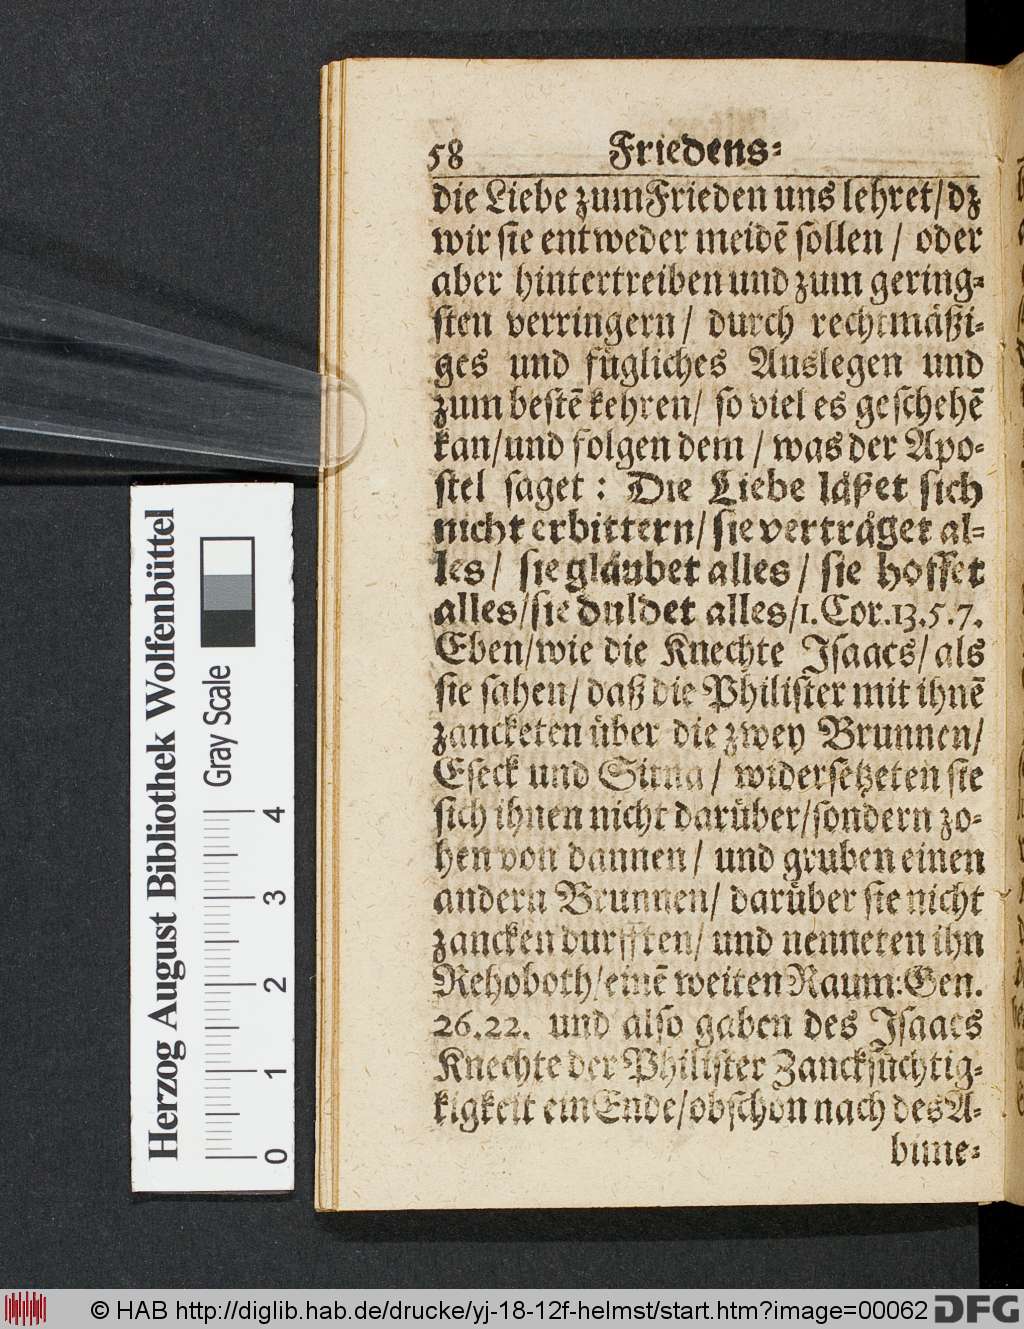 58 Friedens⸗
die Liebe zum Frieden uns lehret/dz
wir sie entweder meidē sollen / oder
aber hintertreiben und zum gering⸗
sten verringern/ durch rechtmäßi⸗
ges und fügliches Auslegen und
zum bestē kehren/ so viel es geschehē
kan/und folgen dem / was der Apo⸗
stel saget : Die Liebe läßet sich
nicht erbittern/ sie verträget al⸗
les/ sie gläubet alles / sie hoffet
alles/sie duldet alles/1. Cor. 13. 5. 7.
Eben/wie die Knechte Isaacs/ als
sie sahen/ daß die Philister mit ihnē
zancketen über die zwey Brunnen/
Eseck und Sitna / widersetzeten sie
sich ihnen nicht darüber/sondern zo⸗
hen von dannen/ und gruben einen
andern Brunnen/ darüber sie nicht
zancken durfften/ und nenneten ihn
Rehoboth/einē weiten Raum: Gen.
26. 22. und also gaben des Isaacs
Knechte der Philister Zancksüchtig⸗
kigkeit ein Ende/obschon nach des A⸗
bime⸗
Herzog August Bibliothek Wolfenbüttel
Gray Scale
0 1 2 3 4
© HAB http://diglib.hab.de/drucke/yj-18-12f-helmst/start.htm?image=00062 DFG